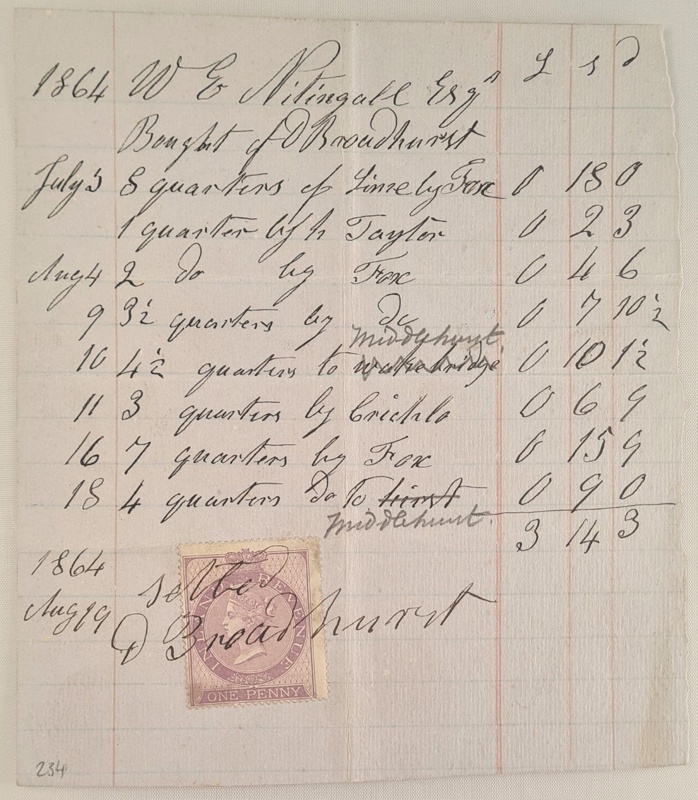 1864 W E Nitingall Esqr £ s d
Bought of D Broadhurst
July 5 8 quarters of Lime by Fox 0 18 0
1 quarter by h Taylor 0 2 3
Aug 4 2 do by Fox 0 4 6
9 3½ quarters by do 0 7 10½
Middlehurst
10 4½ quarters to wakebridge 0 10 1½
11 3 quarters by Crichlo 0 6 9
16 7 quarters by Fox 0 15 9
18 4 quarters Do To hirst 0 9 0
Middlehurst.
3 14 3
1864
Aug 19 settled
D Broadhurst
INLAND REVENUE
ONE PENNY
234